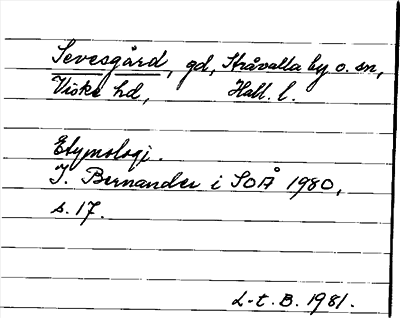 Sevesgård, gd, Stråvalla by o. sn,
Viske hd, Hall. l.
Etymologi.
I. Bernander i SOÅ 1980,
s. 17.
L-t. B. 1981.